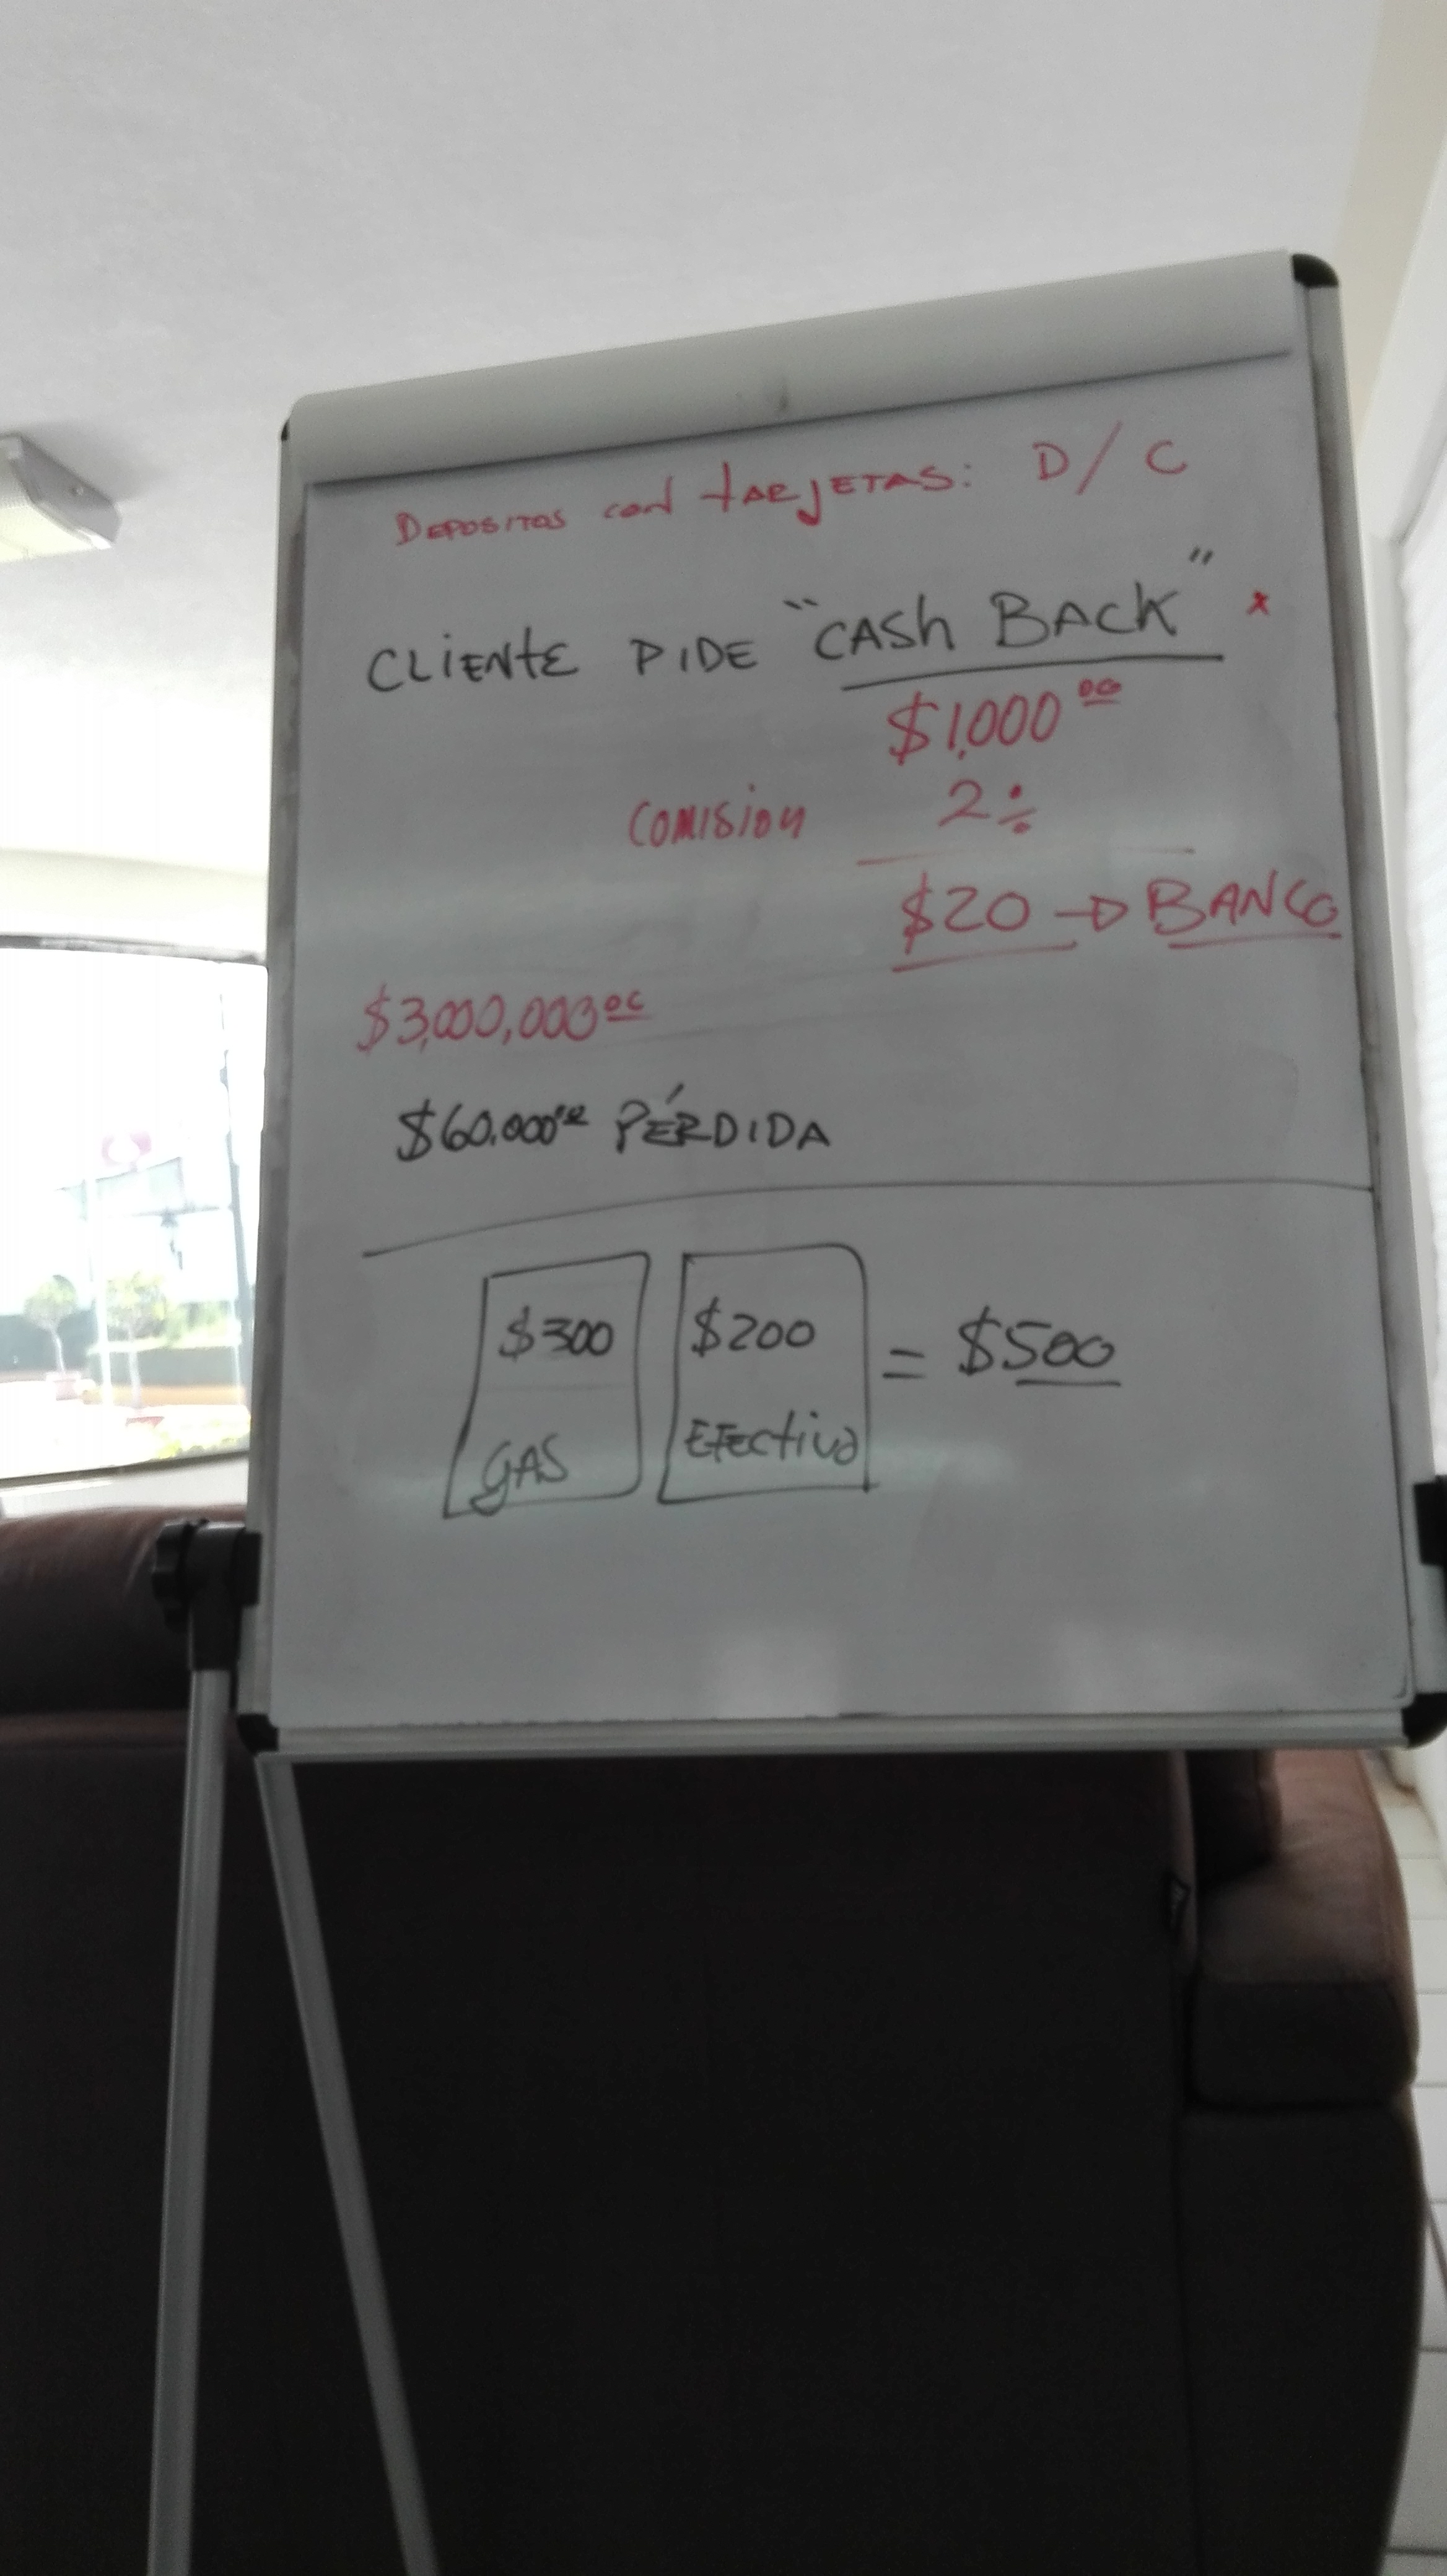 DEPOSITOS CON TARJETAS: D / C
CLIENTE PIDE "CASH BACK" *
$1,000 00
COMISION 2 %
$20 → BANCO
$3,000,000 00
$60,000 00 PÉRDIDA
$300 $200 = $500
GAS EFECTIVO